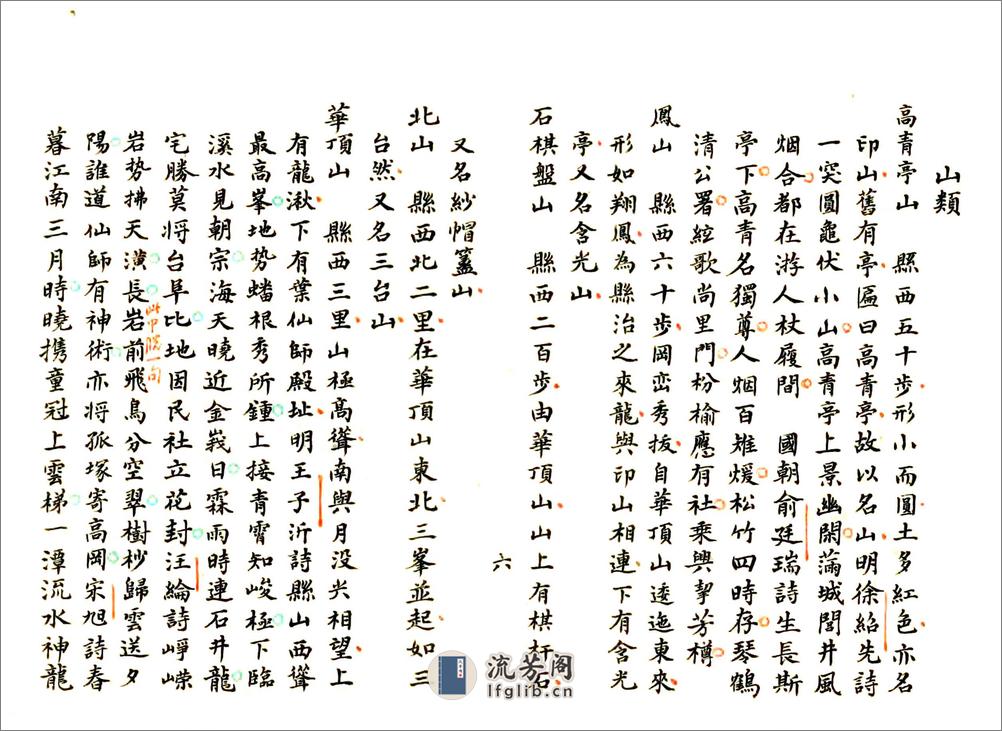 山類
高青亭山　縣西五十步形小而圓土多紅色亦名
印山舊有亭匾曰高青亭故以名山明徐紹先詩
一突圓龜伏小山高青亭上景幽閑滿城閭井風
烟合都在游人杖履間　國朝俞廷瑞詩生長斯
亭下高青名獨尊人烟百雉煖松竹四時存琴鶴
清公署絃歌尚里門枌榆應有社乘興挈芳樽
鳳山　縣西六十步岡巒秀拔自華頂山逶迤東來
形如翔鳳為縣治之來龍與印山相連下有含光
亭又名含光山
石棋盤山　縣西二百步由華頂山山上有棋枰石
六
又名紗帽簋山
北山　縣西北二里在華頂山東北三峯並起如三
台然又名三台山
華頂山　縣西三里山極高聳南與月没尖相望上
有龍湫下有葉仙師殿址明王子沂詩縣山西聳
最高峯地勢蟠根秀所鍾上接青霄知峻極下臨
溪水見朝宗海天曉近金峩日霖雨時連石井龍
宅勝莫將台阜比地因民社立花封汪綸詩崢嶸
岩勢拂天潢長岩前飛鳥分空翠樹杪歸雲送夕
此中脱一句
陽誰道仙師有神術亦將孤塚寄高岡宋旭詩春
暮江南三月時曉攜童冠上雲梯一潭流水神龍
流芳阁
lfglib.cn